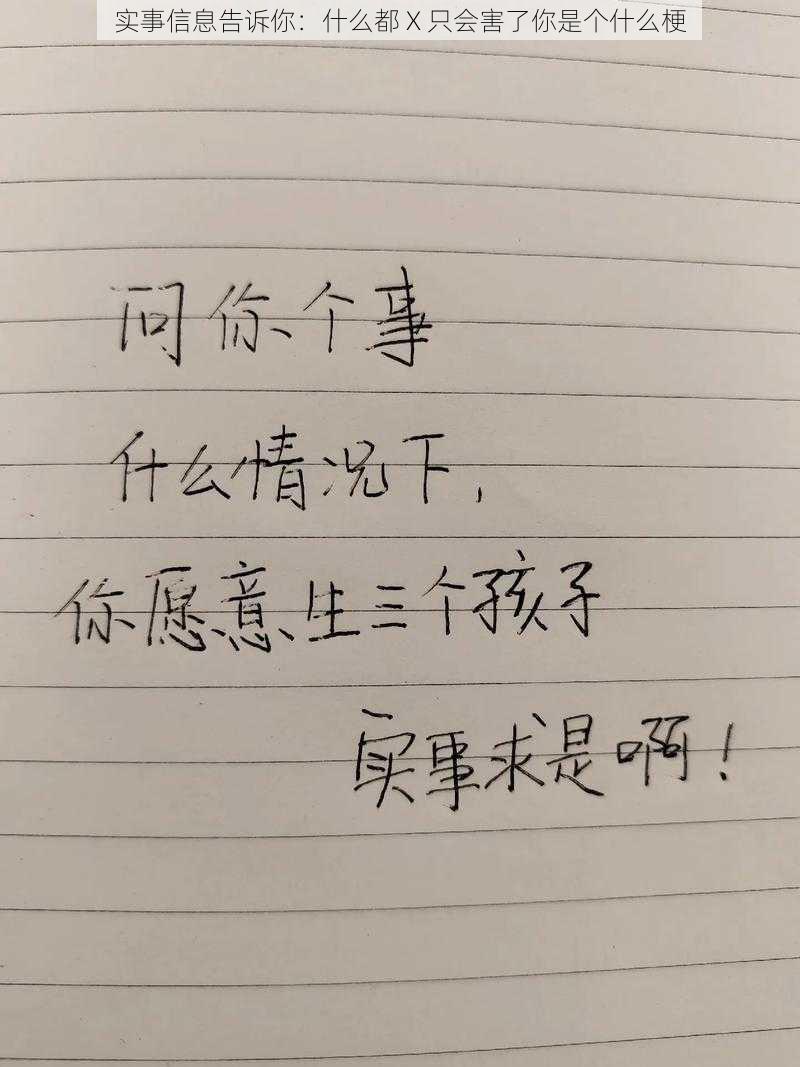 实事信息告诉你：什么都 X 只会害了你是个什么梗
问你个事
什么情况下，
你愿意生三个孩子
实事求是啊！